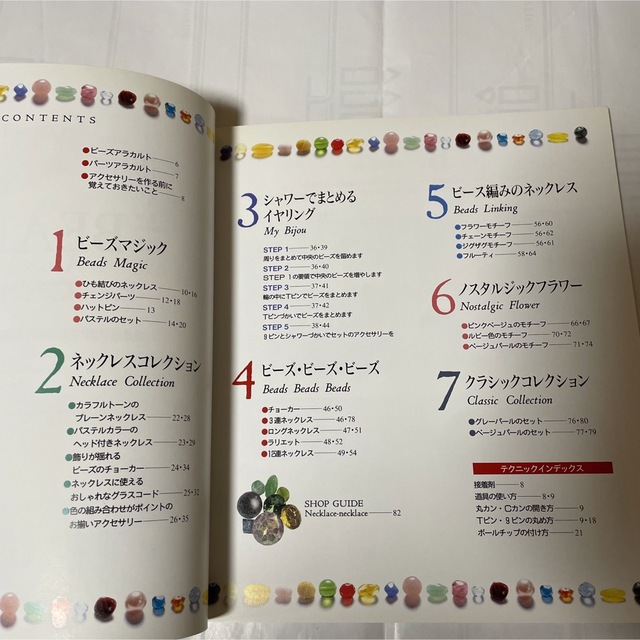 CONTENTS
●ビーズアラカルト——6
●パーツアラカルト——7
●アクセサリーを作る前に
覚えておきたいこと——8
1 ビーズマジック
Beads Magic
●ひも結びのネックレス——10・16
●チェンジパーツ——12・18
●ハットピン——13
●パステルのセット——14・20
2 ネックレスコレクション
Necklace Collection
●カラフルトーンの
プレーンネックレス——22・28
●パステルカラーの
ヘッド付きネックレス——23・29
●飾りが揺れる
ビーズのチョーカー——24・34
●ネックレスに使える
おしゃれなグラスコード——25・32
●色の組み合わせがポイントの
お揃いアクセサリー——26・35
3 シャワーでまとめる
イヤリング
My Bijou
STEP 1——36・39
周りをまとめて中央のビーズを留めます
STEP 2——36・40
STEP 1の要領で中央のビーズを増やします
STEP 3——37・41
輪の中にTピンでビーズをまとめます
STEP 4——37・42
Tピンづかいでビーズをまとめます
STEP 5——38・44
9ピンとシャワーづかいでセットのアクセサリーを
4 ビーズ・ビーズ・ビーズ
Beads Beads Beads
●チョーカー——46・50
●3連ネックレス——46・78
●ロングネックレス——47・51
●ラリエット——48・52
●15連ネックレス——49・54
SHOP GUIDE
Necklace-necklace——82
5 ビース編みのネックレス
Beads Linking
●フラワーモチーフ——56・60
●チェーンモチーフ——56・62
●ジグザグモチーフ——56・61
●フルーティ——58・64
6 ノスタルジックフラワー
Nostalgic Flower
●ピンクベージュのモチーフ——66・67
●ルビー色のモチーフ——70・72
●ベージュパールのモチーフ——71・74
7 クラシックコレクション
Classic Collection
●グレーパールのセット——76・80
●ベージュパールのセット——77・79
テクニックインデックス
接着剤——8
道具の使い方——8・9
丸カン・Cカンの開き方——9
Tピン・9ピンの丸め方——9・18
ボールチップの付け方——21